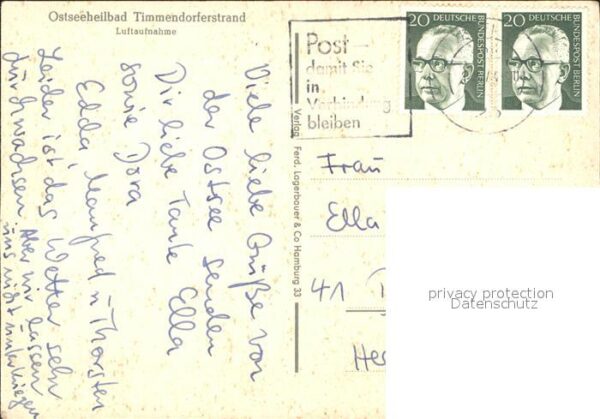 Ostseeheilbad Timmendorferstrand
Luftaufnahme
Viele liebe Grüße von
der Ostsee senden
Dir liebe Tante Ella
sowie Dora
Edda, Manfred u. Thorsten
Leider ist das Wetter sehr
durchwachsen. Aber wir lassen
uns nicht unterkriegen
Verlag Ferd. Lagerbauer & Co Hamburg 33
Post –
damit Sie
in
Verbindung
bleiben
20 DEUTSCHE BUNDESPOST BERLIN
20 DEUTSCHE BUNDESPOST BERLIN
Frau
Ella
41
Hes
privacy protection
Datenschutz